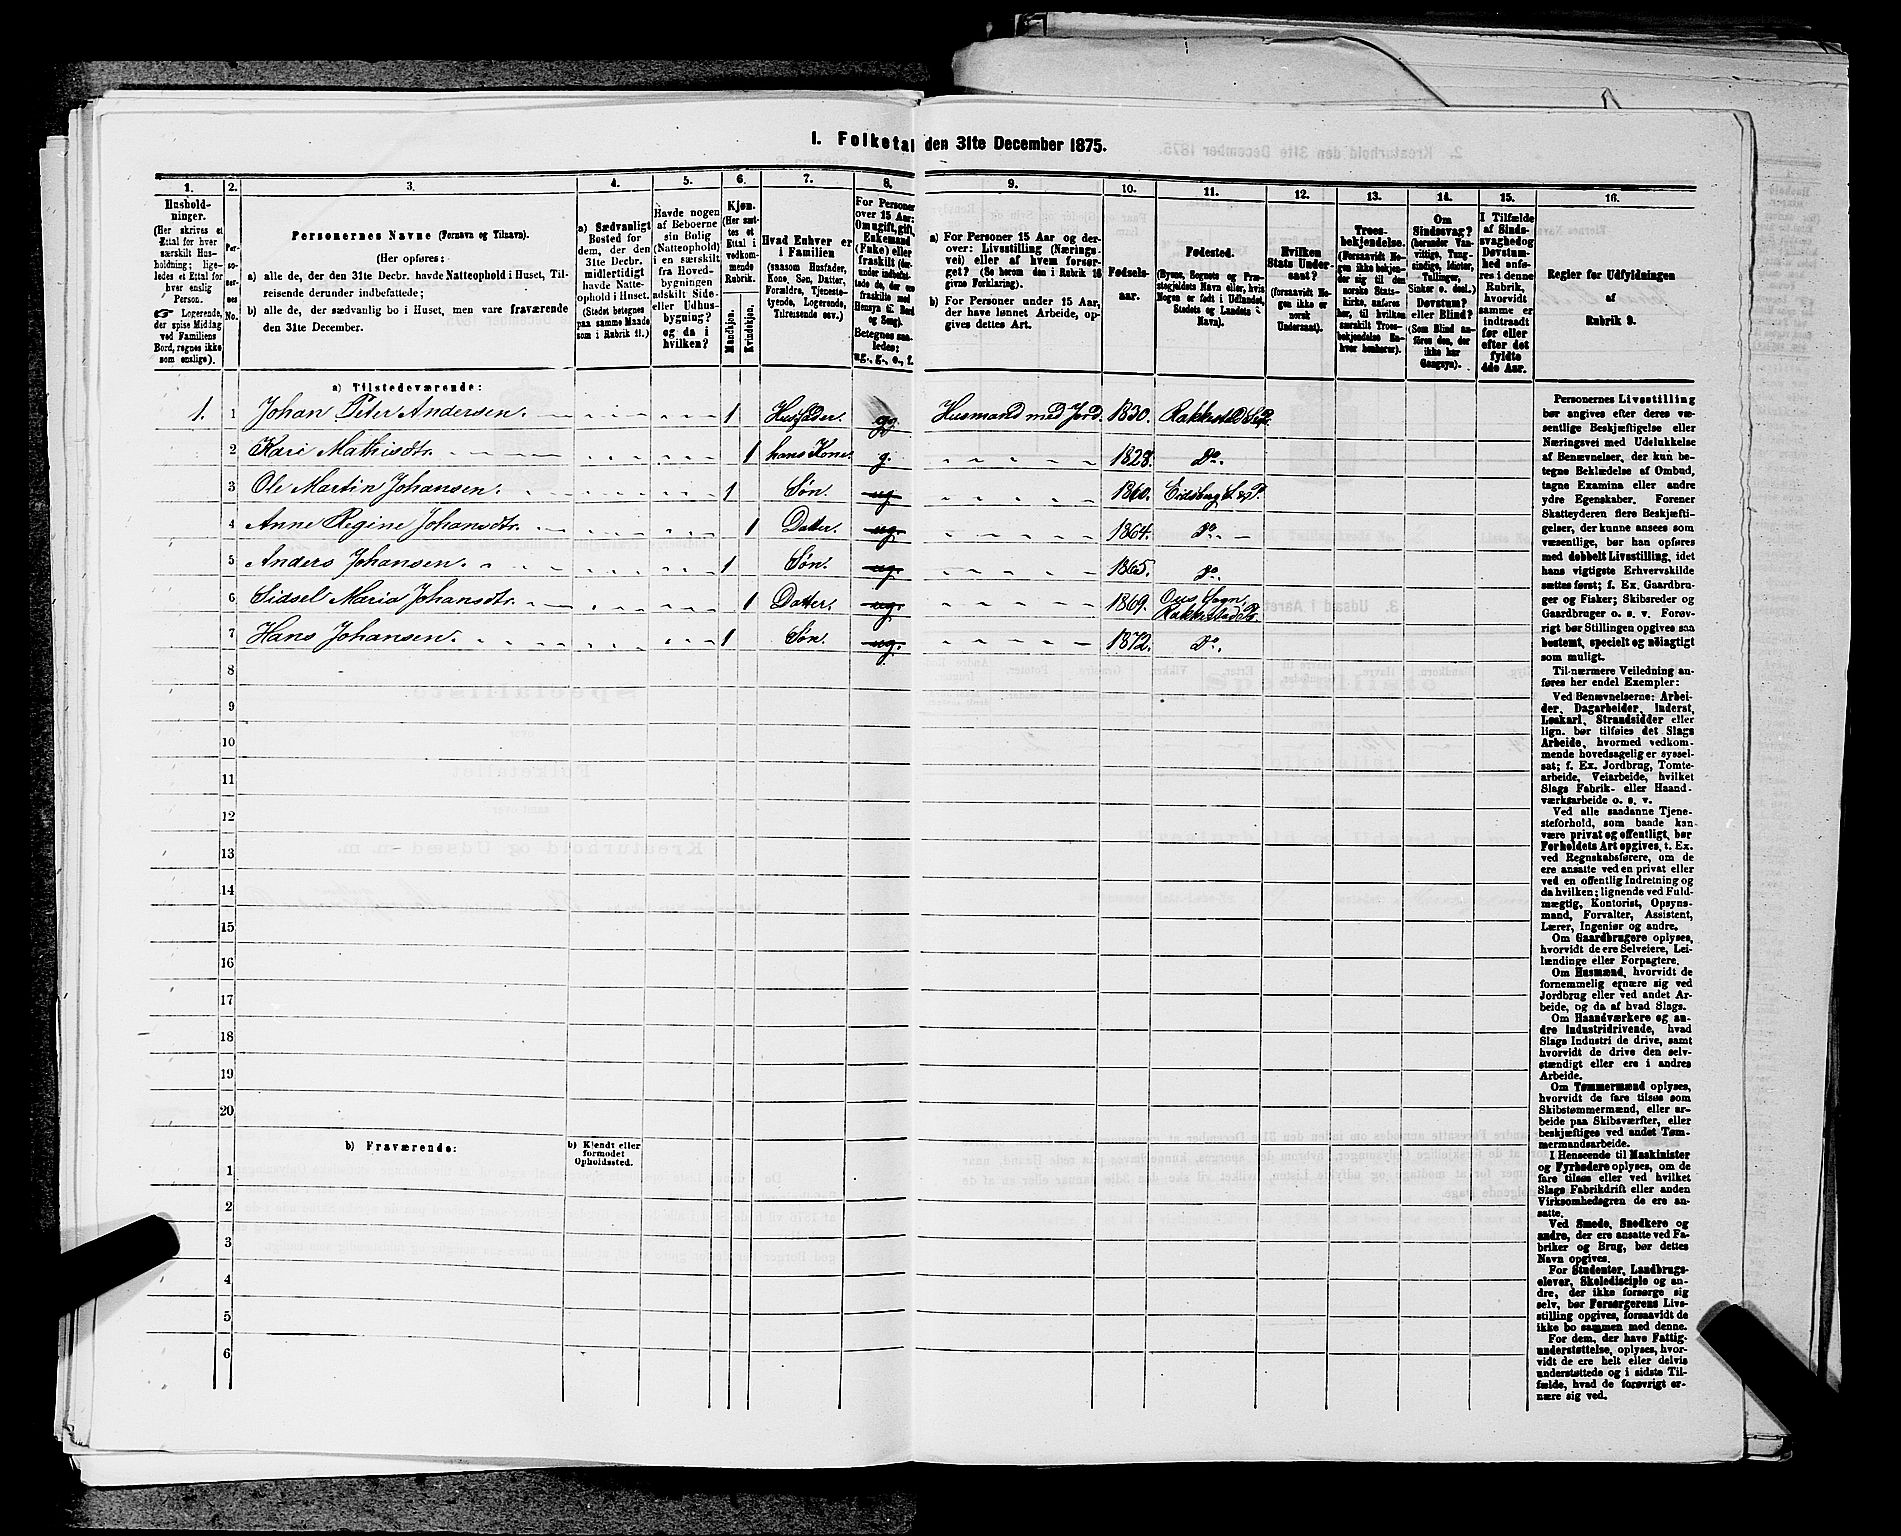 I. Folketal den 31te December 1875.
1. 2. 3. 4. 5. 6. 7. 8. 9. 10. 11. 12. 13. 14. 15. 16.
Hushold-
ninger.
(Her skrives et
Ettal for hver
særskilt Hus-
holdning; lige-
ledes et Ettal for
hver enslig
Person.
☞ Logerende,
der spise Middag
ved Familiens
Bord, regnes ikke
som enslige).
Per-
so-
ner-
nes
No.
Personernes Navne (Fornavn og Tilnavn).
(Her opføres:
a) alle de, der den 31te Decbr. havde Natteophold i Huset, Til-
reisende derunder indbefattede;
b) alle de, der sædvanlig bo i Huset, men vare fraværende
den 31te December.
a) Sædvanligt
Bosted for
dem, der den
31te Decbr.
midlertidigt
havde Natte-
ophold i Huset.
(Stedet betegnes
paa samme Maade
som i Rubrik 11.)
Havde nogen
af Beboerne
sin Bolig
(Natteophold)
i en særskilt
fra Hoved-
bygningen
adskilt Side-
eller Udhus-
bygning?
og da i
hvilken?
Kjøn.
(Her sæt-
tes et
Ettal i
vedkom-
mende
Rubrik.
Mandkjøn.
Kvindekjøn.
Hvad Enhver er
i Familien
(saasom Husfader,
Kone, Søn, Datter,
Forældre, Tjeneste-
tyende, Logerende,
Tilreisende osv.)
For Personer
over 15 Aar:
Om ugift, gift,
Enkemand
(Enke) eller
fraskilt (der-
under indbefat-
tede de, der ere
fraskilte med
Hensyn til Bord
og Seng).
Betegnes saa-
ledes:
ug., g., e., f.
a) For Personer 15 Aar og der-
over: Livsstilling (Nærings-
vei) eller af hvem forsør-
get? (Se herom den i Rubrik 16
givne Forklaring).
b) For Personer under 15 Aar,
der have lønnet Arbeide, op-
gives dettes Art.
Fødsels-
aar.
Fødested.
(Byens, Sognets og Præ-
stegjeldets Navn eller, hvis
Nogen er født i Udlandet,
Stedets og Landets
Navn).
Hvilken
Stats Under-
saat?
(forsaavidt No-
gen ikke er
norsk
Undersaat).
Troes-
bekjendelse.
(Forsaavidt No-
gen ikke bekjen-
der sig til den
norske Stats-
kirke, anføres
her, til hvilken
særskilt Troes-
bekjendelse En-
hver henhører).
Om
Sindssvag?
(herunder Van-
vittige, Tung-
sindige, Idioter,
Tullinger,
Sinker o. desl.)
Døvstum?
eller Blind?
(Som Blind an-
føres den, der
ikke har
Gangsyn).
I Tilfælde
af Sinds-
svaghed og
Døvstum-
hed anfø-
res i denne
Rubrik,
hvorvidt
samme er
indtraadt
før eller
efter det
fyldte
4de Aar.
Regler for Udfyldningen
af
Rubrik 9.
a) Tilstedeværende:
1. 1 Johan Peter Andersen. 1 Husfader. g. Husmand med Jord. 1830. Rakkestad S. & P.
2 Kari Mathisdtr. 1 hans Kone. g. 1828. Do.
3 Ole Martin Johansen. 1 Søn. ug. 1860. Eidsberg S. & P.
4 Anne Regine Johansdtr. 1 Datter. ug. 1864. Do.
5 Anders Johansen. 1 Søn. ug. 1865. Do.
6 Sidsel Maria Johansdtr. 1 Datter. ug. 1869. Os Sogn
Rakkestad P.
7 Hans Johansen. 1 Søn. ug. 1872. Do.
8
9
10
11
12
13
14
15
16
17
18
19
20
b) Fraværende: b) Kjendt eller
formodet
Opholdssted.
1
2
3
4
5
6
Personernes Livsstilling
bør angives efter deres væ-
sentlige Beskjæftigelse eller
Næringsvei med Udelukkelse
af Benævnelser, der kun be-
tegne Beklædelse af Ombud,
tagne Examina eller andre
ydre Egenskaber. Forener
Skatteyderen flere Beskjæfti-
gelser, der kunne ansees som
væsentlige, bør han opføres
med dobbelt Livsstilling, idet
hans vigtigste Erhvervskilde
sættes først; f. Ex. Gaardbru-
ger og Fisker; Skibsreder og
Gaardbruger o. s. v. Forøv-
rigt bør Stillingen opgives saa
bestemt, specielt og nøiagtigt
som muligt.
Til nærmere Veiledning an-
føres her endel Exempler:
Ved Benævnelserne: Arbei-
der, Dagarbeider, Inderst,
Løskarl, Strandsidder eller
lign. bør tilføies det Slags
Arbeide, hvormed vedkom-
mende hovedsagelig er syssel-
sat; f. Ex. Jordbrug, Tomte-
arbeide, Veiarbeide, hvilket
Slags Fabrik- eller Haand-
værksarbeide o. s. v.
Ved alle saadanne Tjene-
steforhold, som baade kan
være privat og offentligt, bør
Forholdets Art opgives, t. Ex.
ved Regnskabsførere, om de
ere ansatte ved en privat eller
ved en offentlig Indretning og
da hvilken; lignende ved Fuld-
mægtig, Kontorist, Opsyns-
mand, Forvalter, Assistent,
Lærer, Ingeniør og andre.
Om Gaardbrugere oplyses,
hvorvidt de ere Selveiere, Lei-
lændinge eller Forpagtere.
Om Husmænd, hvorvidt de
fornemmelig ernære sig ved
Jordbrug eller ved andet Ar-
beide, og da af hvad Slags.
Om Haandværkere og an-
dre Industridrivende, hvad
Slags Industri de drive, samt
hvorvidt de drive den selv-
stændigt eller ere i andres
Arbeide.
Om Tømmermænd oplyses,
hvorvidt de fare tilsøs som
Skibstømmermænd, eller ar-
beide paa Skibsværfter, eller
beskjæftiges ved andet Tøm-
mermandsarbeide.
I Henseende til Maskinister
og Fyrbødere oplyses, om de
fare tilsøs eller ved hvilket
Slags Fabrikdrift eller anden
Virksomhedsgren de ere an-
satte.
Ved Smede, Snedkere og
andre, der ere ansatte ved Fa-
briker og Brug, bør dettes
Navn opgives.
For Studenter, Landbrugs-
elever, Skoledisciple og an-
dre, der ikke forsørge sig
selv, bør Forsørgerens Livs-
stilling opgives, forsaavidt de
ikke bo sammen med denne.
For dem, der have Fattig-
understøttelse, oplyses, hvor-
vidt de ere helt eller delvis
understøttede og i sidste Til-
fælde, hvad de forøvrigt er-
nære sig ved.